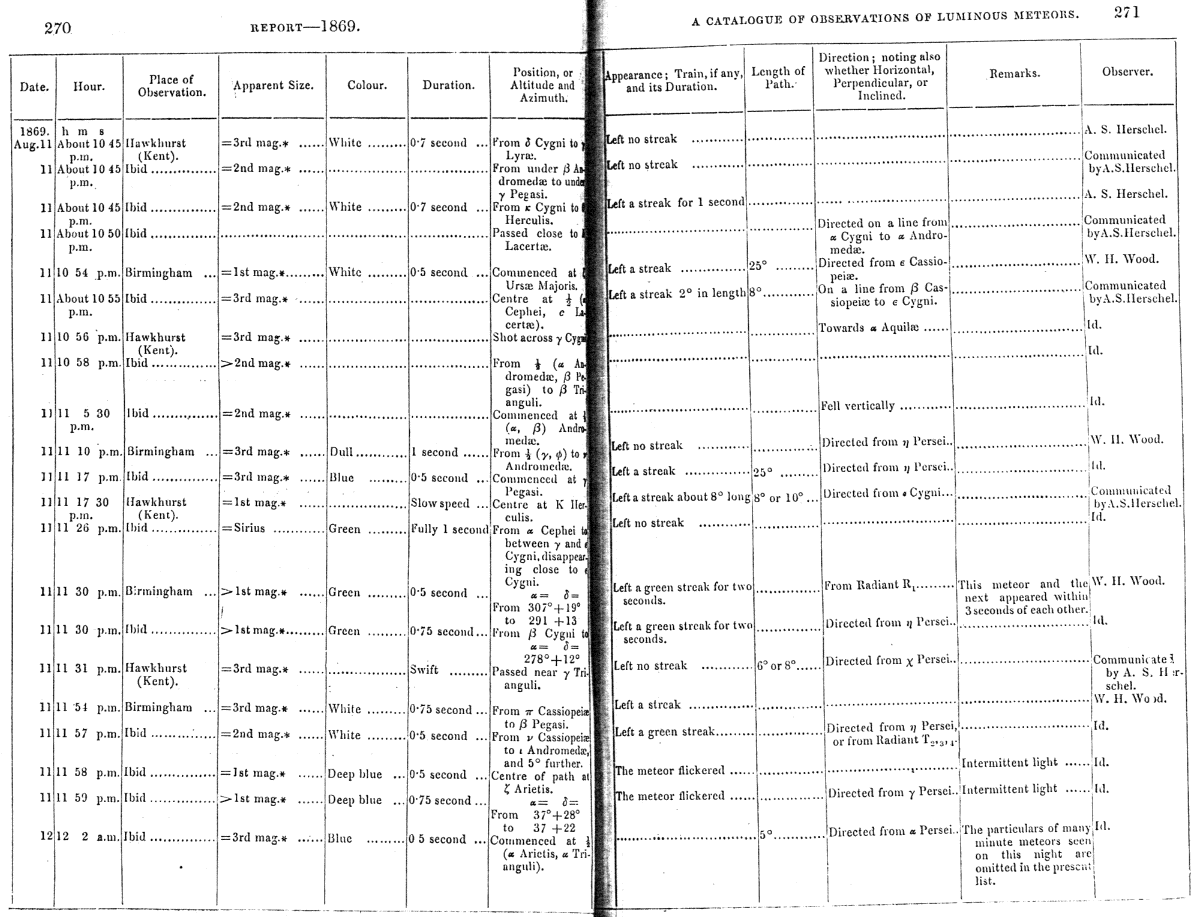 270 REPORT—1869.
Date. Hour. Place of Observation. Apparent Size. Colour. Duration. Position, or Altitude and Azimuth.
1869. h m s
Aug.11 About 10 45 Hawkhurst =3rd mag.* ...... White ......... 0·7 second ... From δ Cygni to
p.m. (Kent). Lyræ.
11 About 10 45 Ibid ............... =2nd mag.* ...... ............... ............... From under β An-
p.m. dromedæ to under
γ Pegasi.
11 About 10 45 Ibid ............... =2nd mag.* ...... White ......... 0·7 second ... From κ Cygni to
p.m. Herculis.
11 About 10 50 Ibid ............... ..................... ............... ............... Passed close to
p.m. Lacertæ.
11 10 54 p.m. Birmingham ... =1st mag.* ....... White ......... 0·5 second ... Commenced at
Ursæ Majoris.
11 About 10 55 Ibid ............... =3rd mag.* ...... ............... ............... Centre at ½ (
p.m. Cephei, c La-
certæ).
11 10 56 p.m. Hawkhurst =3rd mag.* ...... ............... ............... Shot across γ Cygni
(Kent).
11 10 58 p.m. Ibid ............... >2nd mag.* ...... ............... ............... From ½ (α An-
dromedæ, β Pe-
gasi) to β Tri-
anguli.
11 11 5 30 Ibid ............... =2nd mag.* ...... ............... ............... Commenced at
p.m. (α, β) Andro-
medæ.
11 11 10 p.m. Birmingham ... =3rd mag.* ...... Dull ............ 1 second ...... From ½ (γ, φ) to
Andromedæ.
11 11 17 p.m. Ibid ............... =3rd mag.* ...... Blue ......... 0·5 second ... Commenced at γ
Pegasi.
11 11 17 30 Hawkhurst =1st mag.* ...... ............... Slow speed ... Centre at K Her-
p.m. (Kent). culis.
11 11 26 p.m. Ibid ............... =Sirius ............ Green ......... Fully 1 second From α Cephei to
between γ and ε
Cygni, disappear-
ing close to ε
Cygni.
11 11 30 p.m. Birmingham ... >1st mag.* ...... Green ......... 0·5 second ... α= δ=
From 307°+19°
to 291 +13
11 11 30 p.m. Ibid ............... >1st mag.* ........ Green ......... 0·75 second... From β Cygni to
α= δ=
278°+12°
11 11 31 p.m. Hawkhurst =3rd mag.* ...... ............... Swift ......... Passed near γ Tri-
(Kent). anguli.
11 11 54 p.m. Birmingham ... =3rd mag.* ...... White ......... 0·75 second ... From π Cassiopeiæ
to β Pegasi.
11 11 57 p.m. Ibid ............... =2nd mag.* ...... White ......... 0·5 second ... From ν Cassiopeiæ
to ι Andromedæ,
and 5° further.
11 11 58 p.m. Ibid ............... =1st mag.* ...... Deep blue ... 0·5 second ... Centre of path at
ζ Arietis.
11 11 59 p.m. Ibid ............... >1st mag.* ...... Deep blue ... 0·75 second ... α= δ=
From 37°+28°
to 37 +22
12 12 2 a.m. Ibid ............... =3rd mag.* ...... Blue ......... 0 5 second ... Commenced at
(α Arietis, α Tri-
anguli).
A CATALOGUE OF OBSERVATIONS OF LUMINOUS METEORS. 271
Appearance; Train, if any, and its Duration. Length of Path. Direction; noting also whether Horizontal, Perpendicular, or Inclined. Remarks. Observer.
Left no streak ............ ............... ..................... ..................... A. S. Herschel.
Left no streak ............ ............... ..................... ..................... Communicated
by A.S.Herschel.
Left a streak for 1 second ............... ..................... ..................... A. S. Herschel.
..................... ............... Directed on a line from ..................... Communicated
α Cygni to α Andro- by A.S.Herschel.
medæ.
Left a streak ............... 25° ......... Directed from ε Cassio- ..................... W. H. Wood.
peiæ.
Left a streak 2° in length 8°............ On a line from β Cas- ..................... Communicated
siopeiæ to ε Cygni. by A.S.Herschel.
..................... ............... Towards α Aquilæ ...... ..................... Id.
..................... ............... ..................... ..................... Id.
..................... ............... Fell vertically ............ ..................... Id.
Left no streak ............ ............... Directed from η Persei.. ..................... W. H. Wood.
Left a streak ............... 25° ...... Directed from η Persei.. ..................... Id.
Left a streak about 8° long 8° or 10° ... Directed from ε Cygni... ..................... Communicated
by A.S.Herschel.
Left no streak ............ ............... ..................... ..................... Id.
Left a green streak for two ............... From Radiant R₁......... This meteor and the W. H. Wood.
seconds. next appeared within
3 seconds of each other.
Left a green streak for two ............... Directed from η Persei.. ..................... Id.
seconds.
Left no streak ............ 6° or 8°...... Directed from χ Persei.. ..................... Communicated
by A. S. Her-
schel.
Left a streak ............... ............... ..................... ..................... W. H. Wood.
Left a green streak......... ............... Directed from η Persei, ..................... Id.
or from Radiant T₂,₃,₄.
The meteor flickered ...... ............... ..................... Intermittent light ...... Id.
The meteor flickered ...... ............... Directed from γ Persei.. Intermittent light ...... Id.
..................... 5°............ Directed from α Persei.. The particulars of many Id.
minute meteors seen
on this night are
omitted in the present
list.